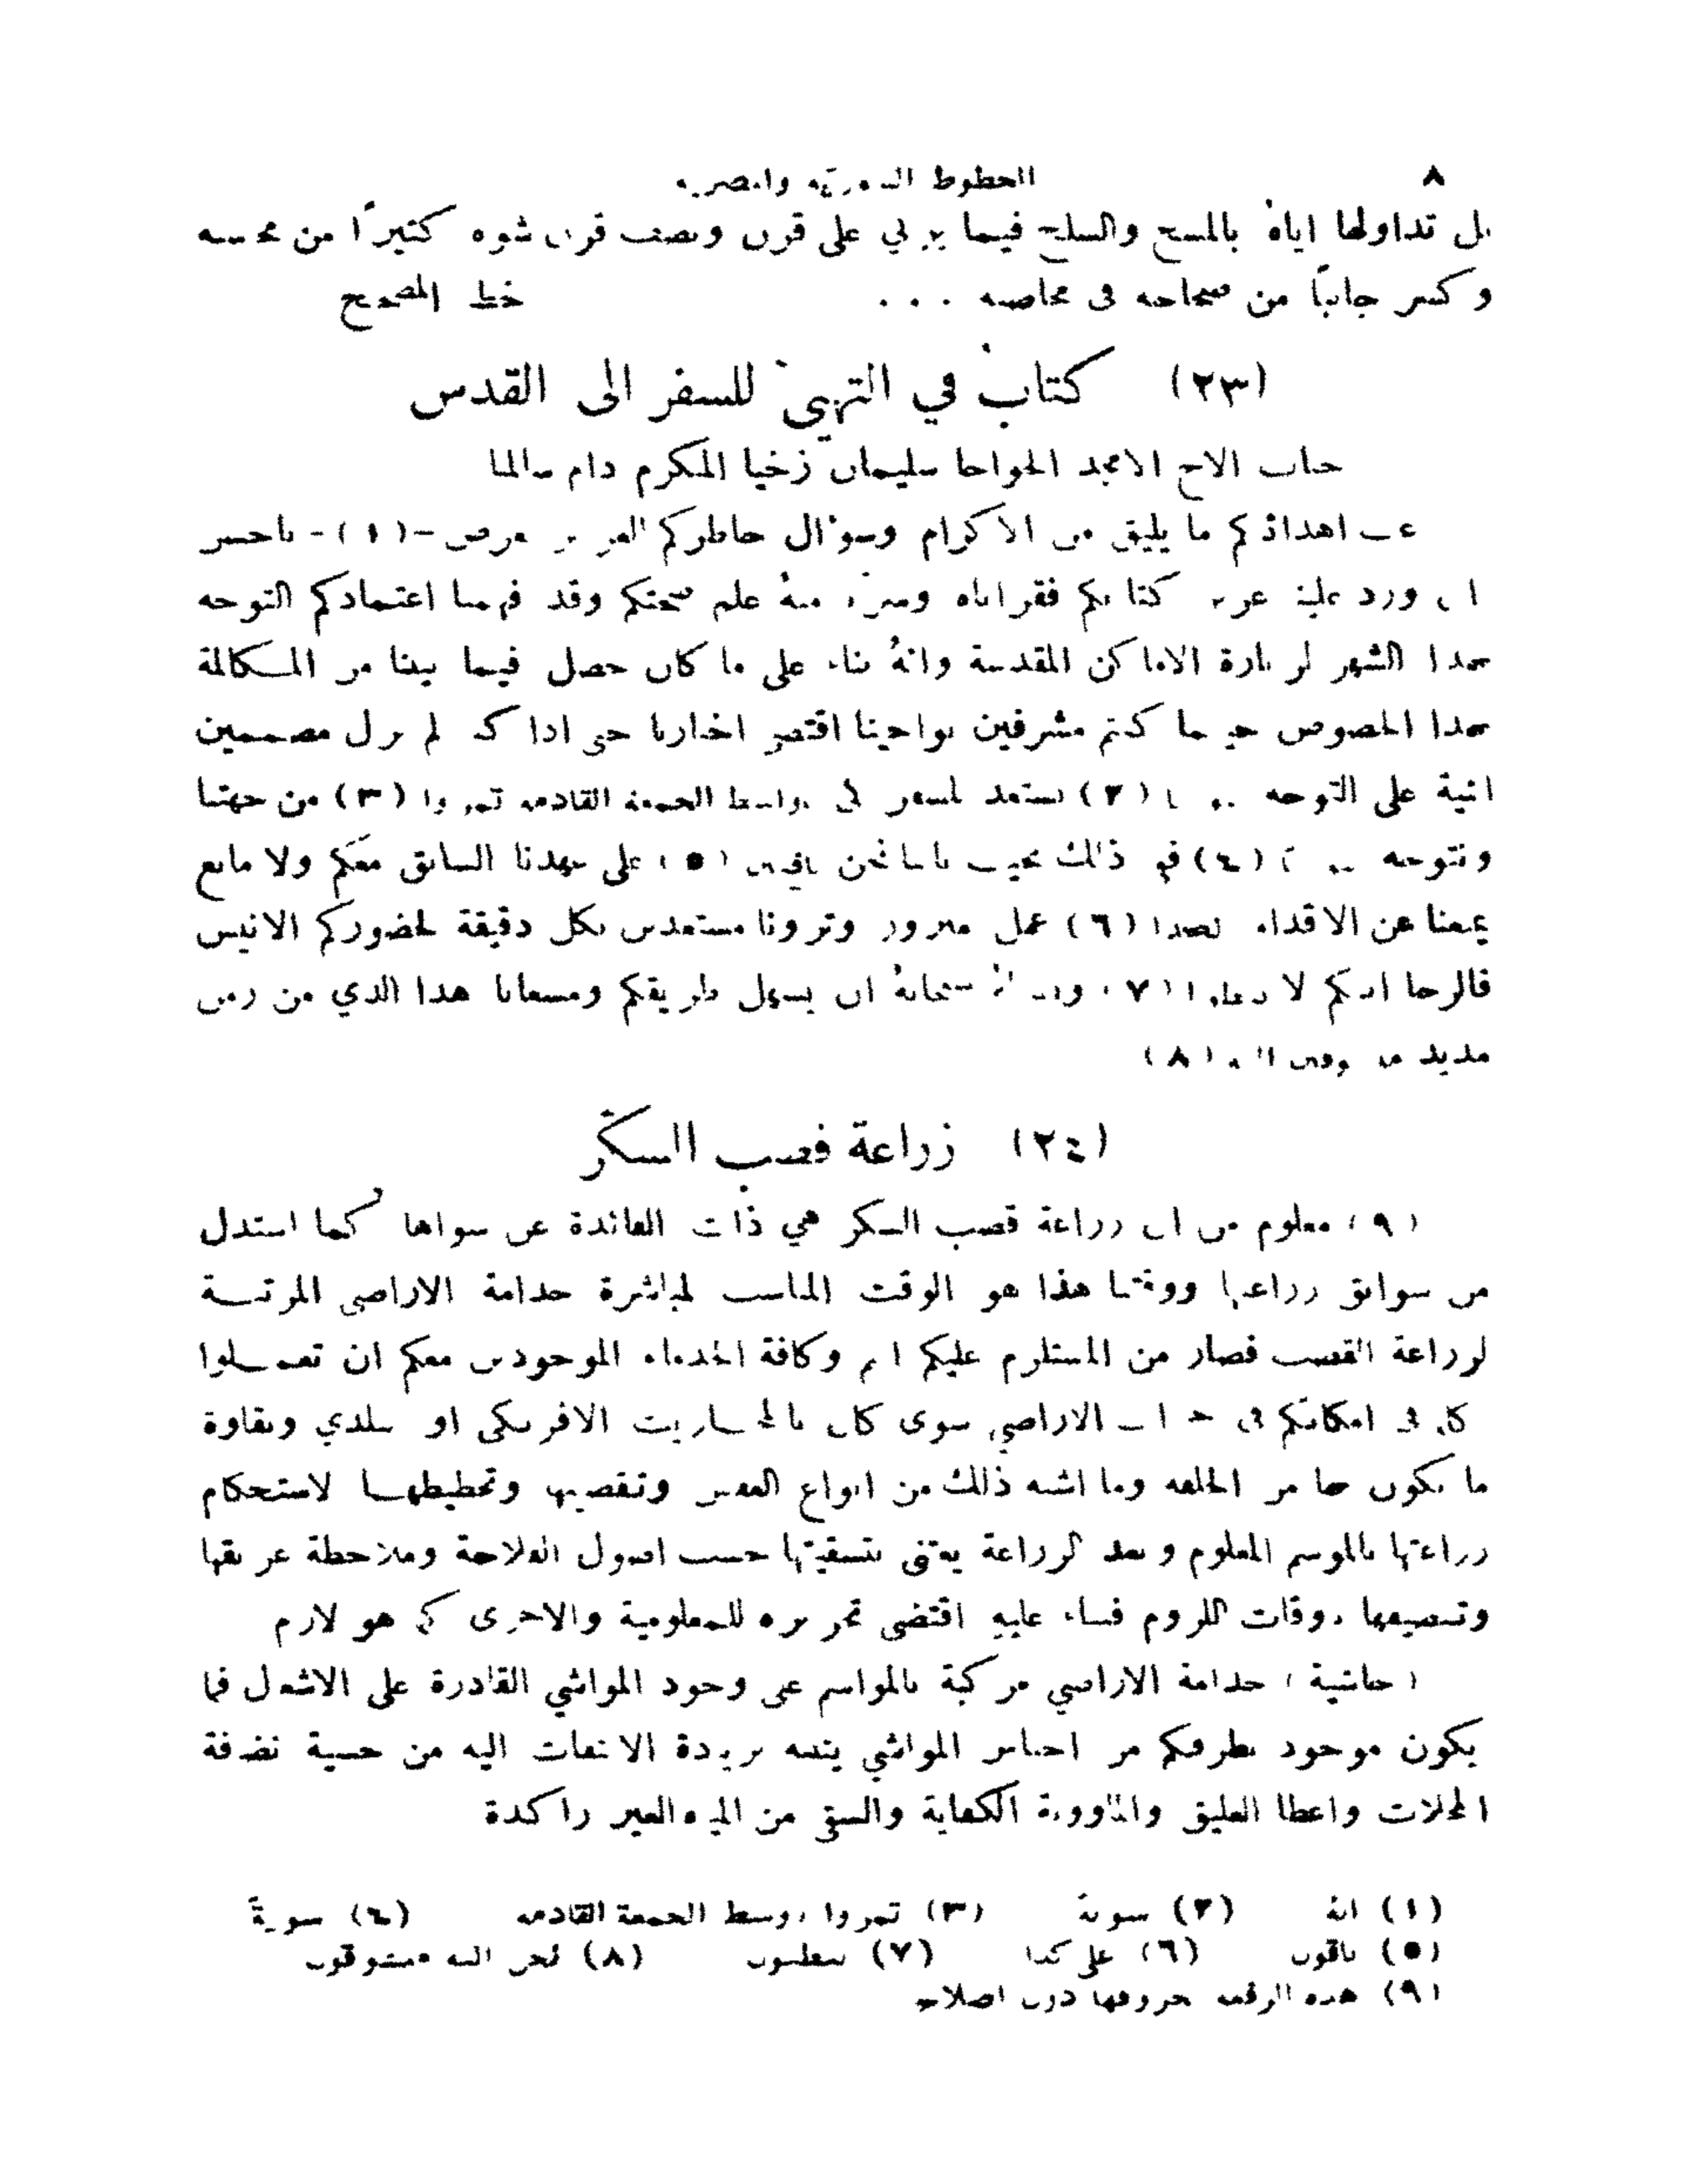 ٨ الخطوط السورية والمصرية
بل تداولها اياهُ بالمسح والسلح فيما يربي على قرن ونصف قرن شوه كثيرًا من محاسنه
وكسر جانبًا من صحاحه في مخاصمه ... خط المصحح
(٢٣) كتابٌ في التهيئ للسفر الى القدس
جناب الاخ الامجد الخواجا سليمان زخيا المكرم دام سالما
غب اهدائكم ما يليق من الاكرام وسؤال خاطركم العزيز نعرض -(١)- بأحسن
آن ورد علينا عزيز كتابكم فقرأناه وسرنا منهُ علم صحتكم وقد فهمنا اعتمادكم التوجه
بهذا الشهر لزيارة الاماكن المقدسة وانهُ بناء على ما كان حصل فيما بيننا من المكالمة
بهذا الخصوص حينما كنتم مشرفين نواحينا اقتضى اخبارنا حتى اذا كنا لم نزل مصممين
النية على التوجه (٢) نستعد للسفر في اواسط الجمعة القادمه تمروا (٣) من جهتنا
ونتوجه (٤) فعن ذلك نجيب باننا نحن باقيين (٥) على عهدنا السابق معكم ولا مانع
يمنعنا عن الاقدام لقصدنا (٦) عمل مبرور وترونا مستعدين بكل دقيقة لحضوركم الانيس
فالرجا انكم لا تبطوا (٧) والله سبحانهُ ان يسهل طريقكم ومسعانا هذا الذي من زمن
مديد (٨)
(٢٤) زراعة قصب السكر
(٩) معلوم من ان زراعة قصب السكر هي ذات الفائدة عن سواها كما استدل
من سوابق زراعتها ووقتنا هذا هو الوقت المناسب لمباشرة خدامة الاراضي المرتبة
لزراعة القصب فصار من المستلزم عليكم انتم وكافة الخدماء الموجودين معكم ان تعملوا
كل ما في امكانكم في حراث الاراضي سوى كان بالمحاريث الافرنكي او البلدي ونقاوة
ما يكون بها من الحلفه وما اشبه ذلك من انواع العفش وتقصيبها وتخطيطها لاستحكام
زراعتها بالموسم المعلوم وبعد الزراعة يعتنى بتسقيتها حسب اصول الفلاحة وملاحظة عزيقها
وتنصيفها باوقات اللزوم فبناء عليهِ اقتضى تحريره للمعلومية والاجرى كما هو لازم
(حاشية) خدامة الاراضي مركبة بالمواسم على وجود المواشي القادرة على الاشغال فما
يكون موجود بطرفكم من اجناس المواشي ينبه بزيادة الالتفات اليه من حيثية نضافة
المحلات واعطا العليق والمناوبة الكفاية والسقي من المياه الغير راكدة
(١) انهُ (٢) سويةً (٣) تمروا اوسط الجمعة القادمه (٤) سويةً
(٥) باقون (٦) على كذا (٧) تبطئون (٨) نحن اليه متشوقون
(٩) هذه الرقعه حروفها دون اصلاح